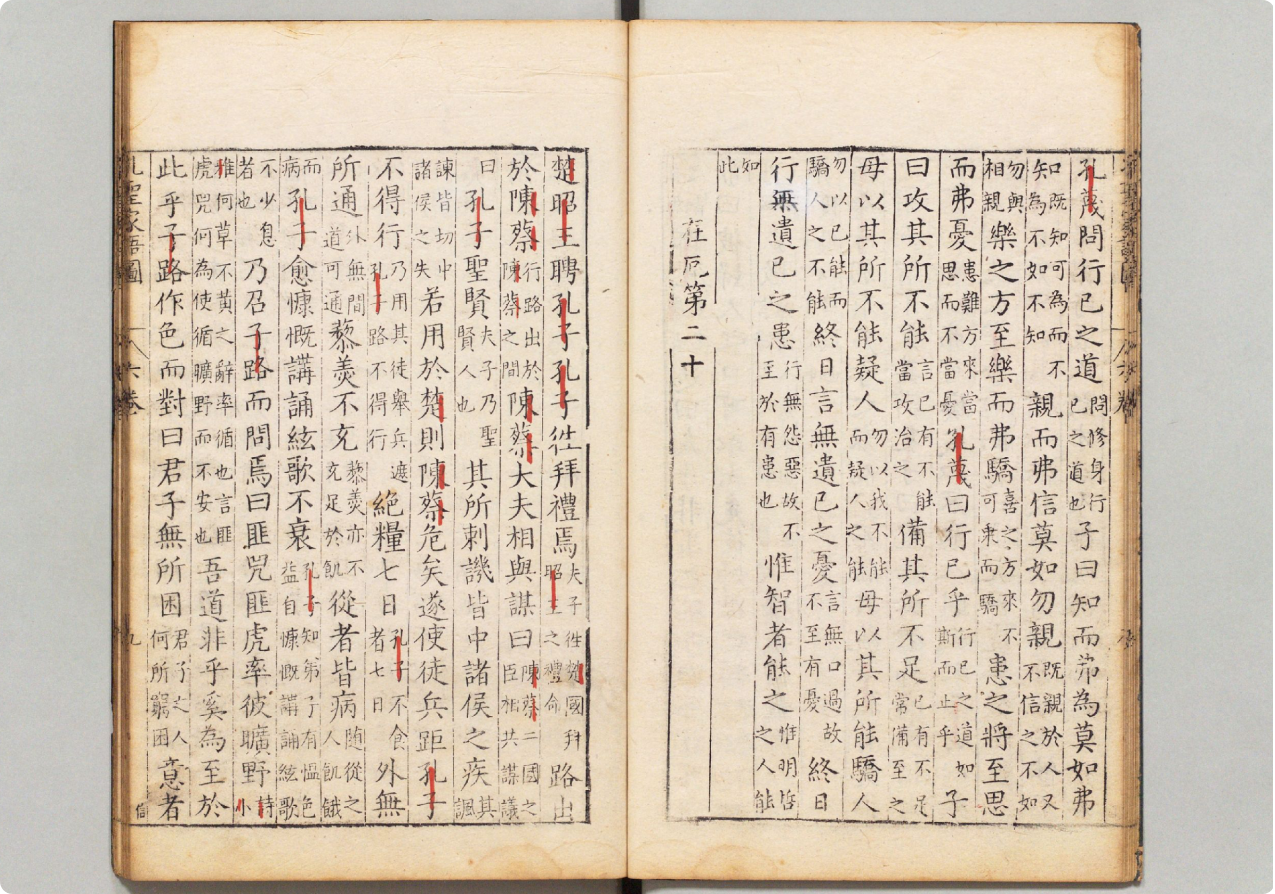 孔蔑問行已之道問修身行已之道也子曰知而弗為莫如弗
知既知可為而不知為不如不知親而弗信莫如勿親既親於人又不信之不如勿與
相親樂之方至樂而弗驕喜之方來不可乘而驕患之將至思
而弗憂患難方來當思而不當憂孔蔑曰行已乎行已之道如斯而止乎子
曰攻其所不能言已有不能當攻治之備其所不足已有不足常備至之
毋以其所不能疑人勿以我不能而疑人之能毋以其所能驕人
勿以已能而驕人之不能終日言無遺已之憂言無口過故不至有憂終日
行無遺已之患行無怨惡故不至於有患也惟智者能之惟明哲之人能
如此
在厄第二十
楚昭王聘孔子孔子徃拜禮焉夫子徃楚國拜昭王之禮命路出
於陳蔡行路出於陳蔡之間陳蔡大夫相與謀曰陳蔡二國之臣相共謀議
曰孔子聖賢夫子乃聖賢人也其所刺譏皆中諸侯之疾其諷
諫皆切中諸侯之失若用於楚則陳蔡危矣遂使徒兵距孔子
不得行乃用其徒舉兵遮孔子路不得行絕糧七日孔子不食者七日外無
所通外無間道可通藜羮不充藜羮亦不充足於飢從者皆病随從之人飢餓
而病孔子愈慷慨講誦絃歌不衰孔子知弟子有愠色益自慷慨講誦絃歌
不少息者也乃召子路而問焉曰匪兕匪虎率彼曠野詩小
雅何草不黃之辭率循也言匪虎兕何為使循曠野而不安也吾道非乎奚為至於
此乎子路作色而對曰君子無所困君子之人何所竆困意者
孔聖家語圖
六卷
九